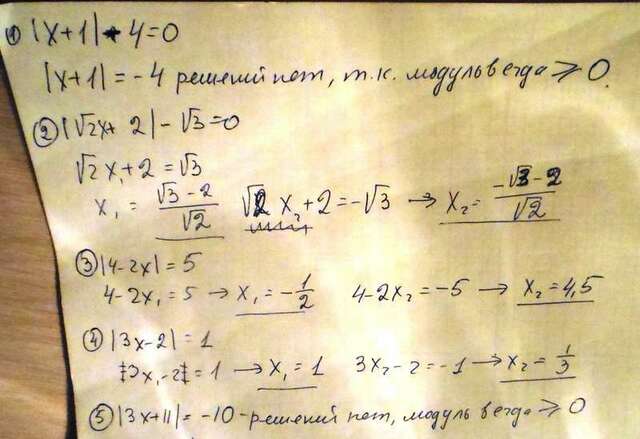 ① |x+1|+4=0
|x+1| = -4 решений нет, т.к. модуль всегда ≥ 0.
② |√2x+2|-√3=0
√2x₁+2=√3
x₁ = (√3-2)/√2 √2x₂+2=-√3 → x₂= (-√3-2)/√2
③ |4-2x|=5
4-2x₁=5 → x₁=-1/2 4-2x₂=-5 → x₂=4,5
④ |3x-2|=1
3x₁-2=1 → x₁=1 3x₂-2=-1 → x₂=1/3
⑤ |3x+11|= -10-решений нет, модуль всегда ≥ 0